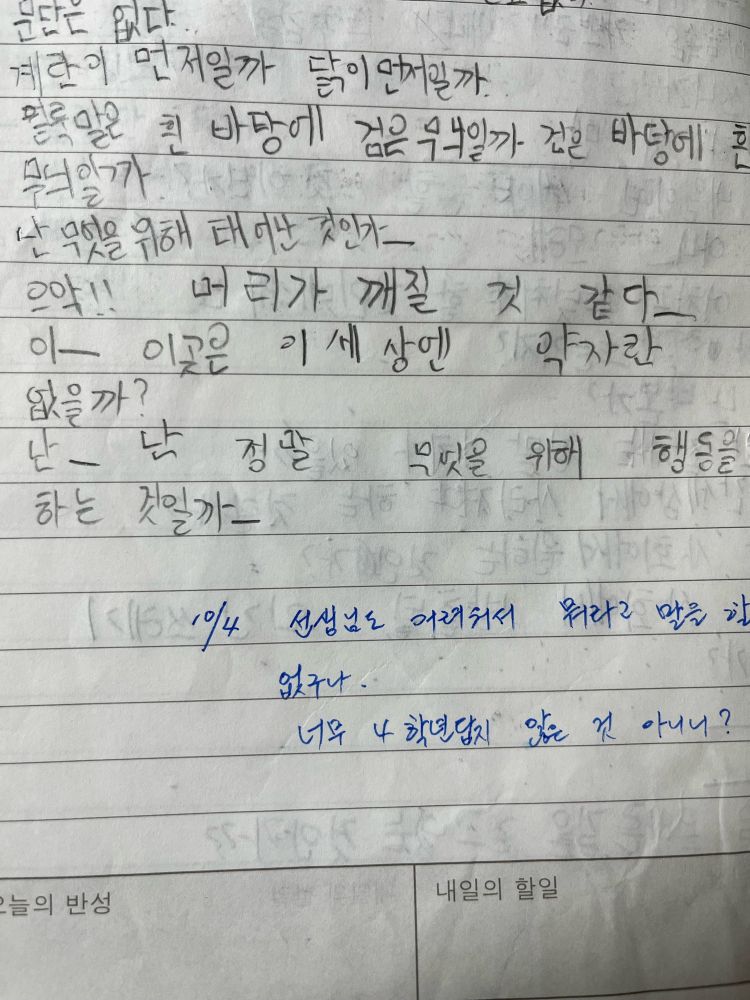 문단은 없다..
계란이 먼저일까 닭이먼저일까.
얼룩말은 흰 바탕에 검은무늬일까 검은 바탕에 흰
무늬일까
난 무엇을 위해 태어난 것인가ㅡ
으악!! 머리가 깨질 것 같다ㅡ
이ㅡ 이곳은 이 세상엔 약자란
없을까?
난ㅡ 난 정말 무엇을 위해 행동을
하는 것일까ㅡ
10/4 선생님도 어려워서 뭐라고 말을 할
없구나.
너무 4학년답지 않은 것 아니니?
오늘의 반성
내일의 할일